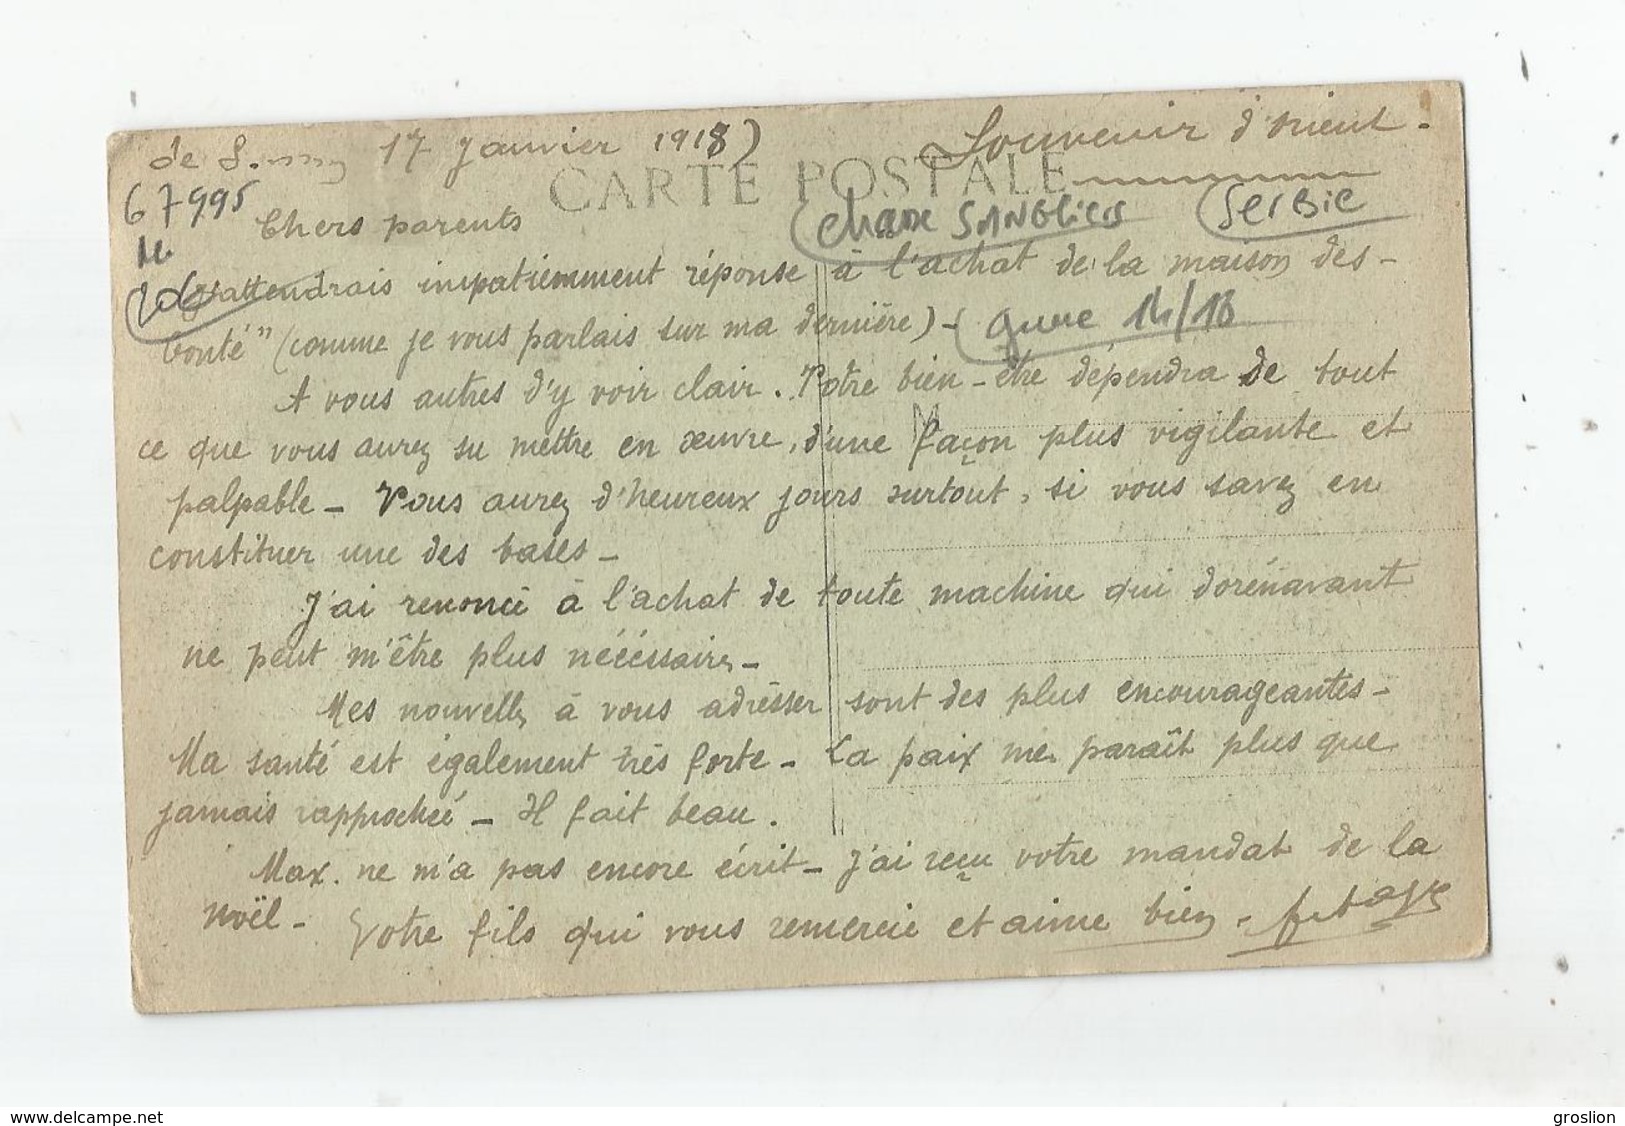 17 Janvier 1918)
Souvenir d'orient.
CARTE POSTALE
67995
Chers parents
Chasse SANGLIERS
SERBIE
J'attendrais impatiemment réponse à l'achat de la maison des-
bonté" (comme je vous parlais sur ma dernière) -
guerre 14/18
A vous autres d'y voir clair. Votre bien-être dépendra de tout
ce que vous aurez su mettre en œuvre, d'une façon plus vigilante et
palpable - Vous aurez d'heureux jours surtout, si vous savez en
constituer une des bases -
J'ai renoncé à l'achat de toute machine qui dorénavant
ne peut m'être plus nécéssaire -
Mes nouvelles à vous adrésser sont des plus encourageantes -
Ma santé est également très forte - La paix me paraît plus que
jamais rapprochée - Il fait beau.
Max. ne m'a pas encore écrit - J'ai reçu votre mandat de la
Noël - Votre fils qui vous remercie et aime bien.
www.delcampe.net
groslion